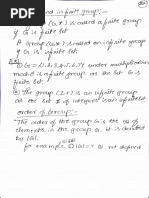 and infinite group:-
(G,*) is called a finite group
if G is finite set
A group (G,*) is called an infinite group
if G is infinite set
under multiplication
as the set G is
finite set
② The group (Z,+) is an infinite group
as the set Z of integers is an infinite set
order of Group:-
The order of the group G is the no. of
elements in the group G, it is denoted
by |G|
for example